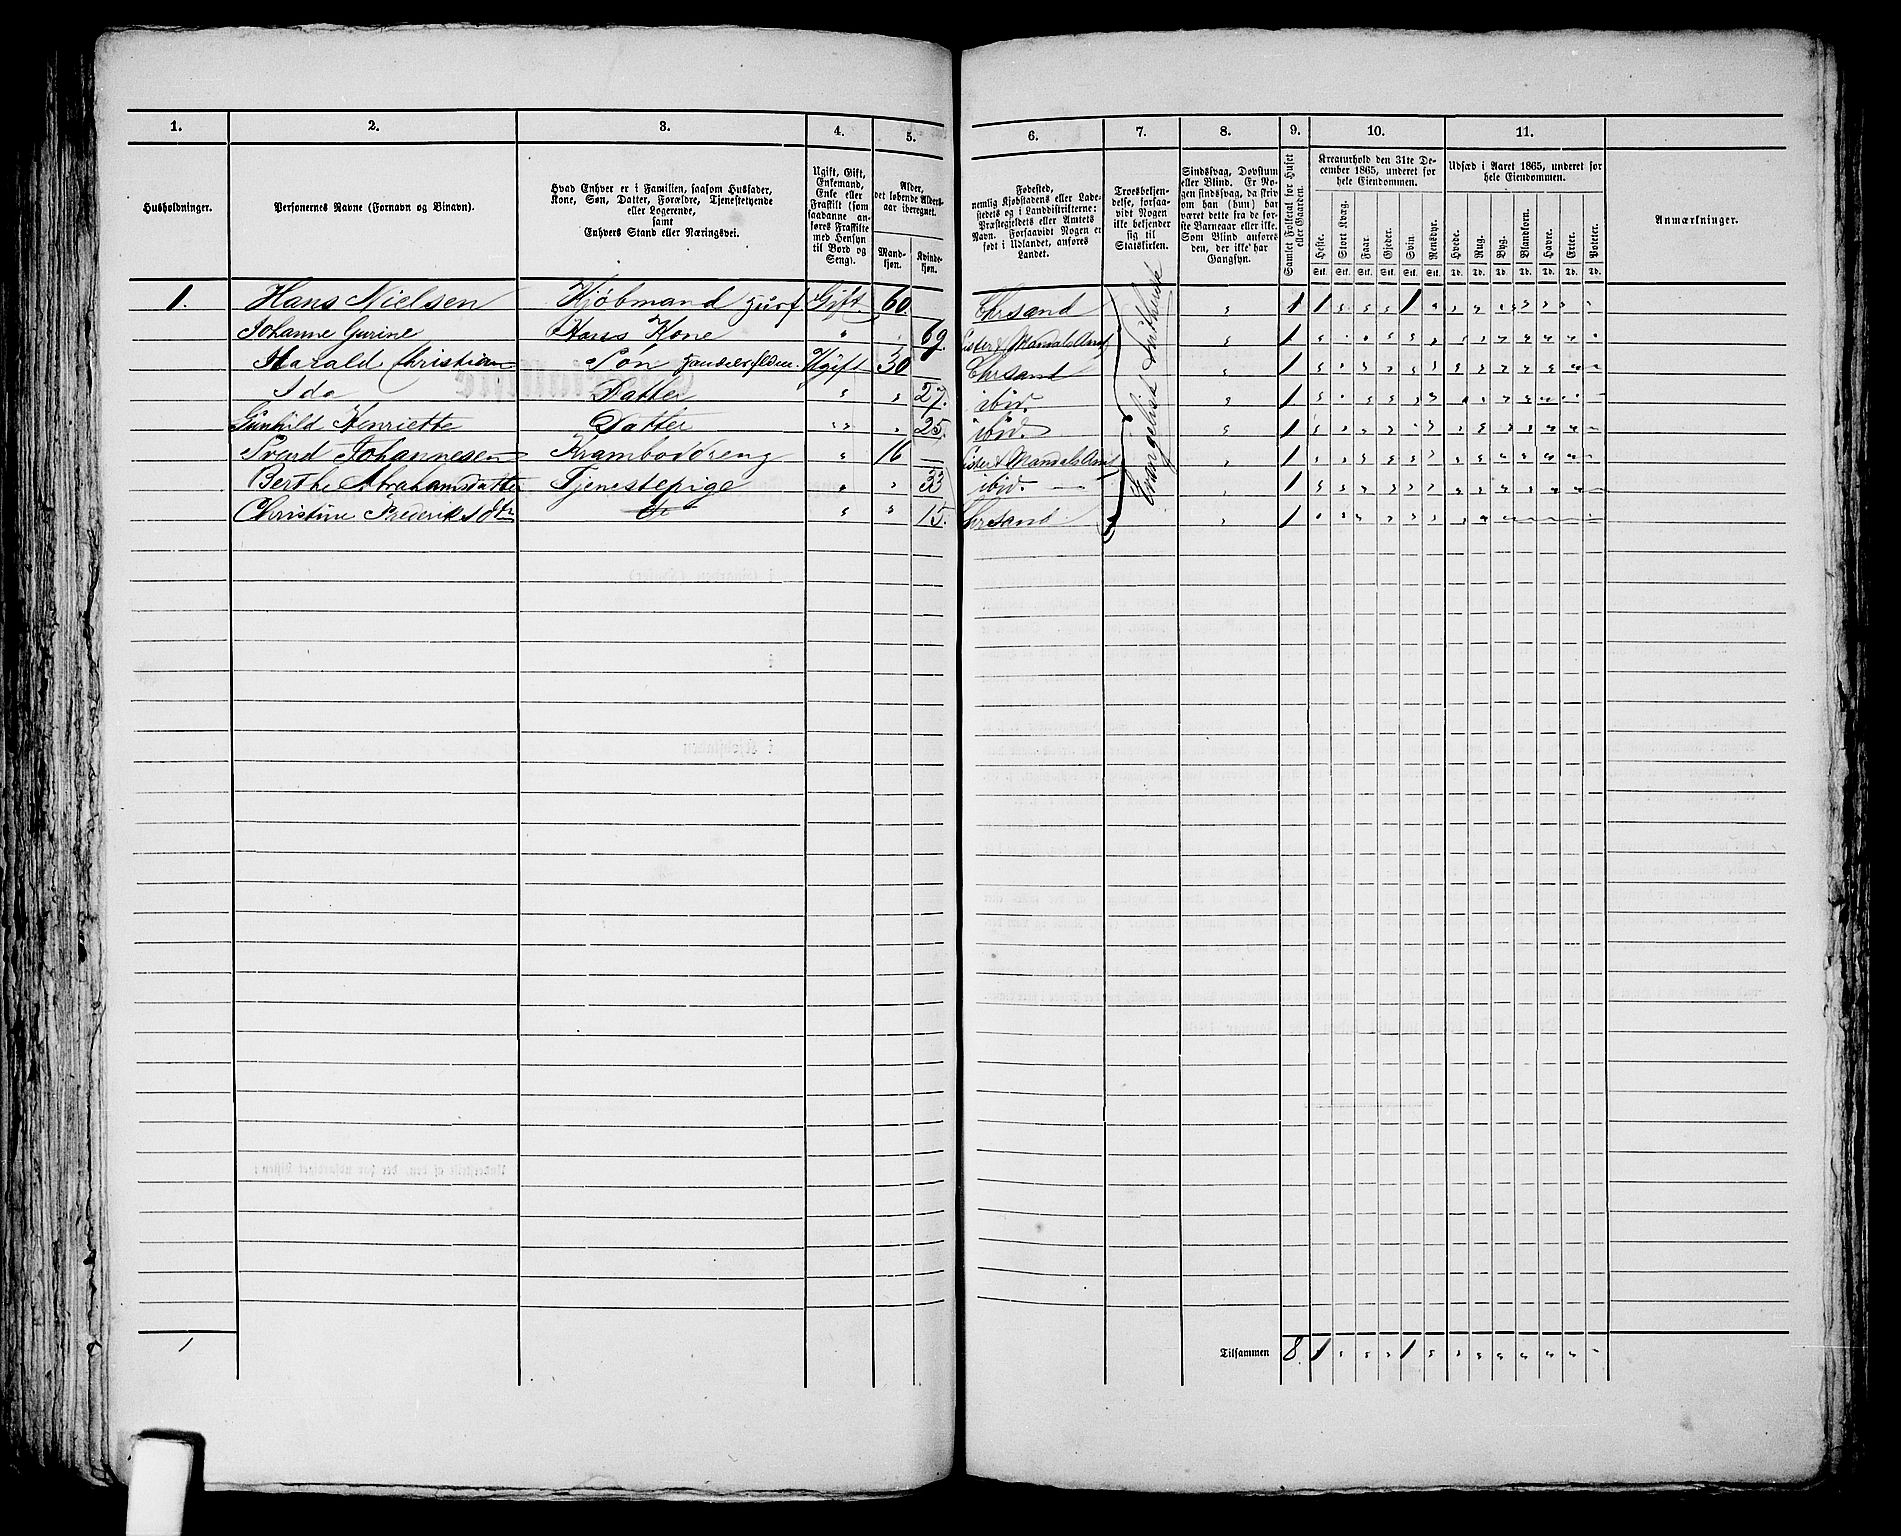 1. 2. 3. 4. 5. 6. 7. 8. 9. 10. 11.
Husholdninger.
Personernes Navne (Fornavn og Binavn).
Hvad Enhver er i Familien, saasom Husfader, Kone, Søn, Datter, Forældre, Tjenestetyende eller Logerende, samt Enhvers Stand eller Næringsvei.
Ugift, Gift, Enkemand, Enke eller Fraskilt (som saadanne anføres Fraskilte med Hensyn til Bord og Seng).
Alder, det løbende Aldersaar iberegnet.
Mandkjøn. Kvindekjøn.
Fødested, nemlig Kjøbstadens eller Ladestedets og i Landdistrikterne: Præstegjeldets eller Amtets Navn. Forsaavidt Nogen er født i Udlandet, anføres Landet.
Troesbekjendelse, forsaavidt Nogen ikke bekjender sig til Statskirken.
Sindssvag, Døvstum eller Blind. Er Nogen sindssvag, da skrives om han (hun) har været dette fra de første Barneaar eller ikke. Som Blind anføres den, der ikke har Gangsyn.
Samlet Folketal for Huset eller Gaarden.
Kreaturhold den 31te December 1865, underet for hele Eiendommen.
Heste. Stort Kvæg. Faar. Gjeder. Svin. Rensdyr.
Stk. Stk. Stk. Stk. Stk. Stk.
Udsæd i Aaret 1865, underet for hele Eiendommen.
Hvede. Rug. Byg. Blandkorn. Havre. Erter. Poteter.
Td. Td. Td. Td. Td. Td. Td.
Anmærkninger.
1. Hans Nielsen Kjøbmand Gift 60 Chrsand 1 1 1
Johanne Gurine Hans Kone " 69. Lister & Mandals Amt 1
Harald Christian Søn Ugift 30 Chrsand 1
Ida Datter " 27. ibid. 1
Gunhild Henriette Datter " 25. ibid. 1
Svend Johannesen Kramboddreng " 16 Lister & Mandals Amt 1
Berthe Abrahamsdatter Tjenestepige " 33 ibid. 1
Christine Frederiksdtr " 15. Chrsand 1
Evangelisk Luthersk
1 Tilsammen 8. 1 1